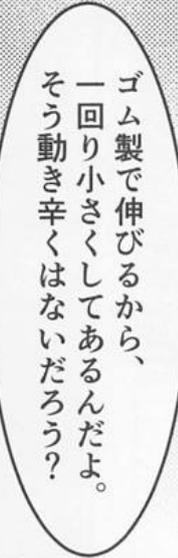 ゴム製で伸びるから、
一回り小さくしてあるんだよ。
そう動き辛くはないだろう？